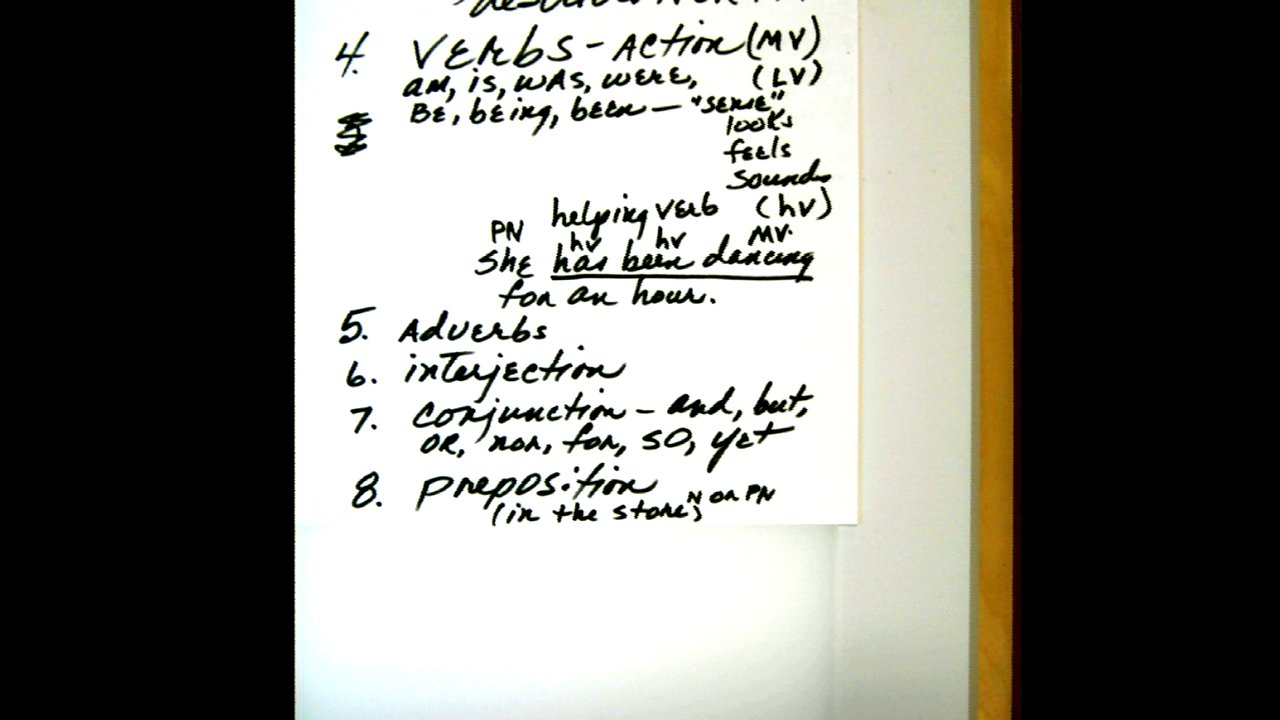 4. VERBS - Action (MV)
am, is, was, were, (LV)
Be, being, been — "sense"
looks
feels
sounds
helping verb (hv)
PN hv hv MV.
She has been dancing
for an hour.
5. Adverbs
6. interjection
7. conjunction - and, but,
or, nor, for, so, yet
8. preposition
(in the store) N or PN